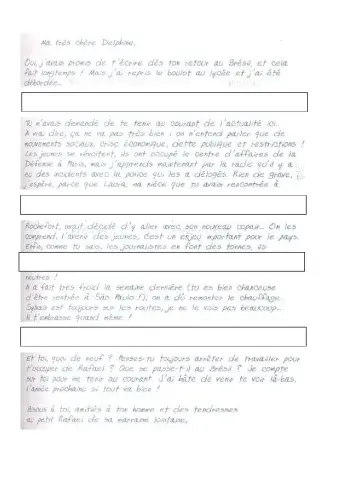 Ma très chère Delphine,
Oui, j'avais promis de t'écrire dès ton retour au Brésil, et cela
fait longtemps ! Mais j'ai repris le boulot au lycée et j'ai été
débordée...
Tu m'avais demandé de te tenir au courant de l'actualité ici.
A vrai dire, ça ne va pas très bien : on n'entend parler que de
mouvements sociaux, crise économique, dette publique et restrictions !
Les jeunes se révoltent, ils ont occupé le centre d'affaires de la
Défense à Paris, mais j'apprends maintenant par la radio qu'il y a
eu des incidents avec la police qui les a délogés. Rien de grave,
j'espère, parce que Laura, ma nièce que tu avais rencontrée à
Rochefort, avait décidé d'y aller avec son nouveau copain... On les
comprend, l'avenir des jeunes, c'est un enjeu important pour le pays.
Enfin, comme tu sais, les journalistes en font des tonnes, ils
neutres !
Il a fait très froid la semaine dernière (tu es bien chanceuse
d'être rentrée à São Paulo !), on a dû remonter le chauffage.
est toujours sur les routes, je ne le vois pas beaucoup...
Il t'embrasse quand même !
Et toi, quoi de neuf ? Penses-tu toujours arrêter de travailler pour
t'occuper de Rafael ? Que se passe-t-il au Brésil ? Je compte
sur toi pour me tenir au courant. J'ai hâte de venir te voir là-bas,
l'année prochaine si tout va bien !
Bisous à toi, amitiés à ton homme et des tendresses
au petit Rafael de sa marraine lointaine,